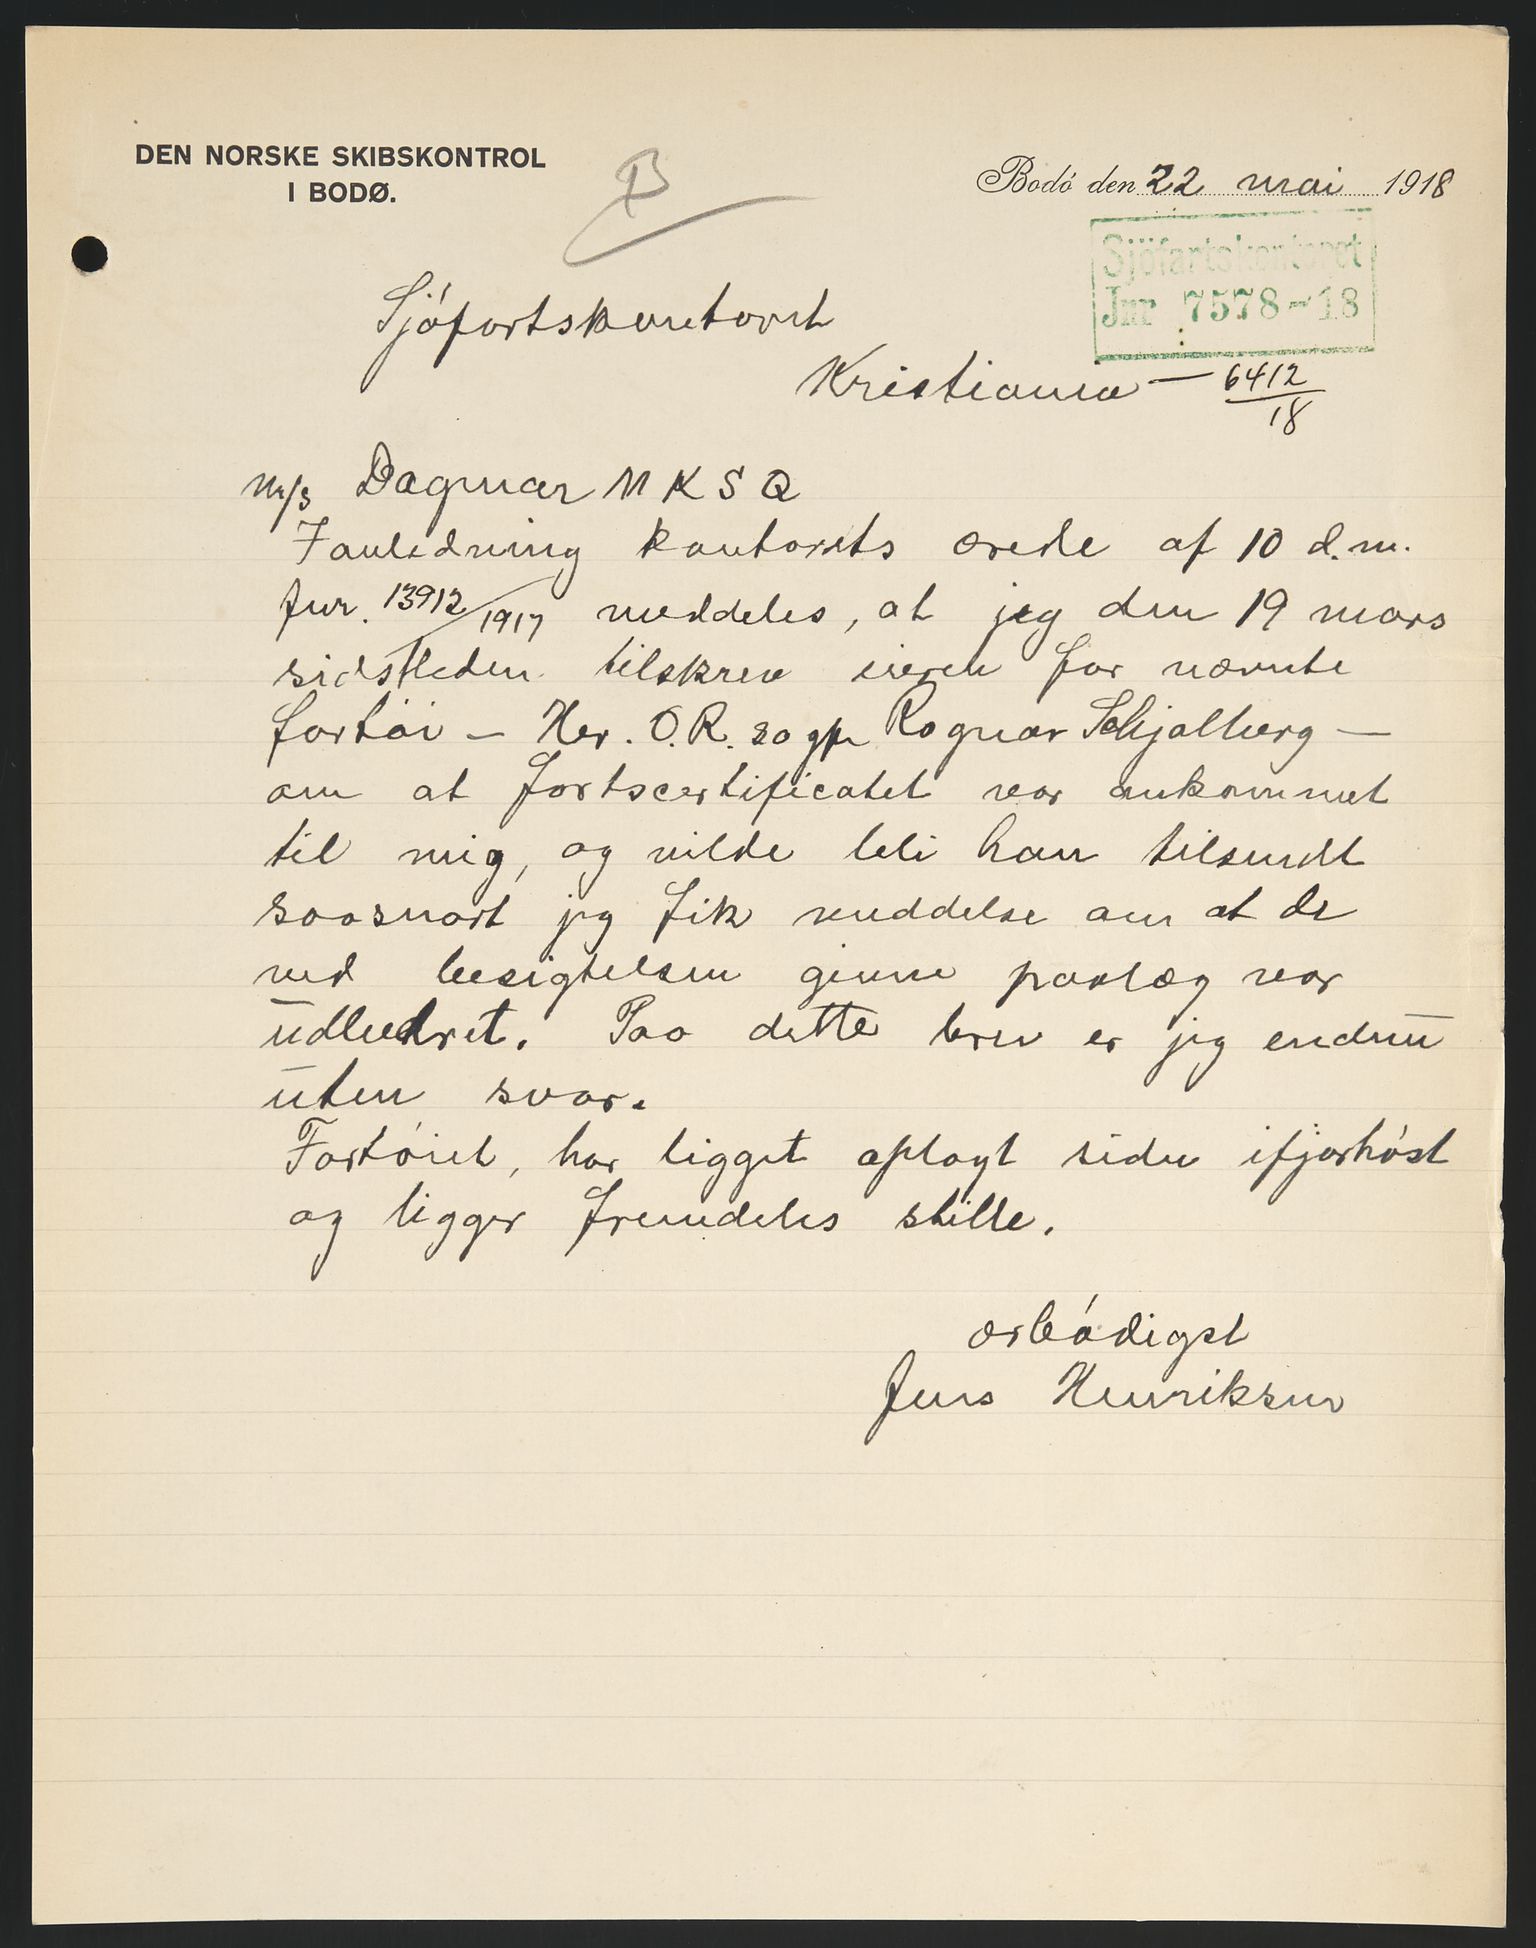 DEN NORSKE SKIBSKONTROL
I BODØ.
B
Bodó den 22 mai 1918
Sjöfartskontoret
Jnr 7578-18
Sjófartskontoret
Kristiania — 6412/18
m/s Dagmar M K S Q
I anledning kontorets ærede af 10 d.m.
Jnr. 13912/1917 meddeles, at jeg den 19 mars
sidstleden tilskrev eieren for nævnte
fartói – Her. O.R. sagfr Ragnar Schjølberg —
om at fartscertificatet var ankommet
til mig, og vilde bli ham tilsendt
saasnart jeg fik meddelse om at de
ved besigtelsen givne paalæg var
udbedret. Paa dette brev er jeg endnu
uten svar.
Fartóiet, har ligget oplagt siden ifjorhóst
og ligger fremdeles stille.
ærbódigst
Jens Henriksen